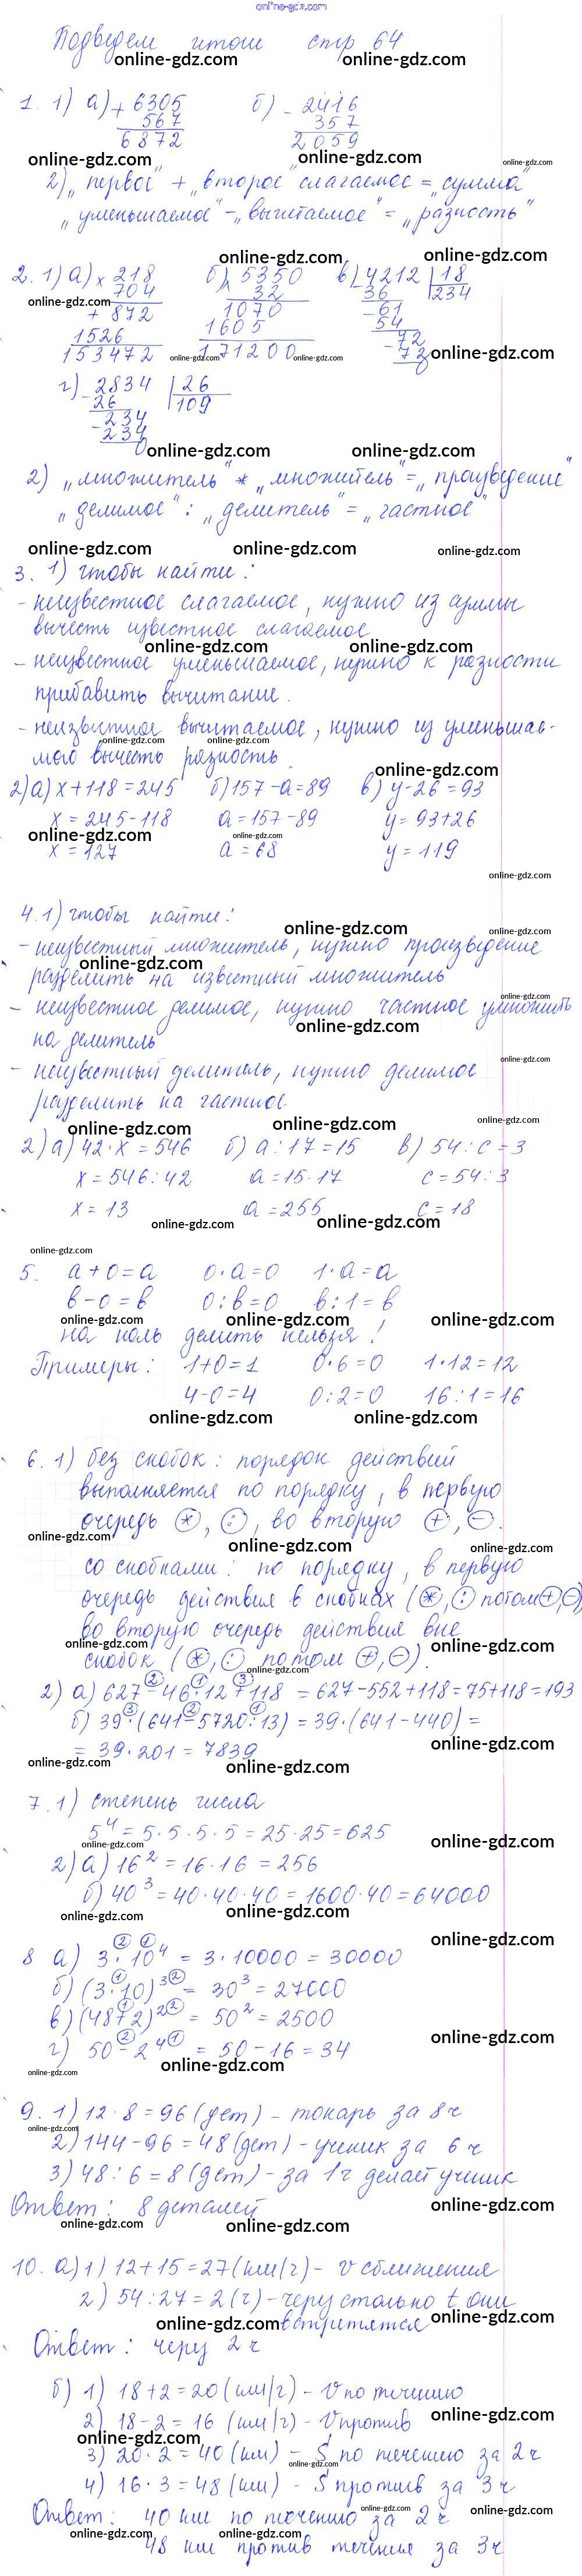 online-gdz.com
Подведем итоги стр 64
online-gdz.com online-gdz.com
1. 1) а) + 6305 б) - 2416
567 357
6872 2059
online-gdz.com online-gdz.com online-gdz.com
2) „первое" + „второе" слагаемое = „сумма"
„уменьшаемое" - „вычитаемое" = „разность"
online-gdz.com online-gdz.com
2. 1) а) x 218 б) x 5350 в) - 4212 | 18
704 32 36 234
online-gdz.com
+ 872 1070 - 61
1526 1605 54
153472 171200 - 72
72
0
online-gdz.com online-gdz.com online-gdz.com
г) - 2834 | 26
26 109
- 234
234
0
online-gdz.com online-gdz.com
2) „множитель" * „множитель" = „произведение"
„делимое" : „делитель" = „частное"
online-gdz.com online-gdz.com online-gdz.com
3. 1) чтобы найти:
- неизвестное слагаемое, нужно из суммы
вычесть известное слагаемое
online-gdz.com online-gdz.com
- неизвестное уменьшаемое, нужно к разности
прибавить вычитание.
- неизвестное вычитаемое, нужно из уменьшае-
online-gdz.com online-gdz.com
мого вычесть разность
online-gdz.com
2) а) x + 118 = 245 б) 157 - а = 89 в) y - 26 = 93
x = 245 - 118 а = 157 - 89 y = 93 + 26
online-gdz.com online-gdz.com
x = 127 а = 68 y = 119
online-gdz.com
4. 1) чтобы найти:
online-gdz.com online-gdz.com
- неизвестный множитель, нужно произведение
online-gdz.com
разделить на известный множитель
online-gdz.com
- неизвестное делимое, нужно частное умножить
online-gdz.com
на делитель
online-gdz.com
- неизвестный делитель, нужно делимое
разделить на частное
online-gdz.com online-gdz.com online-gdz.com
2) а) 42 · x = 546 б) а : 17 = 15 в) 54 : с = 3
x = 546 : 42 а = 15 · 17 с = 54 : 3
x = 13 а = 255 с = 18
online-gdz.com online-gdz.com
online-gdz.com
5. а + 0 = а 0 · а = 0 1 · а = а
в - 0 = в 0 : в = 0 в : 1 = в
online-gdz.com online-gdz.com online-gdz.com
на ноль делить нельзя!
Примеры: 1 + 0 = 1 0 · 6 = 0 1 · 12 = 12
4 - 0 = 4 0 : 2 = 0 16 : 1 = 16
online-gdz.com online-gdz.com
6. 1) без скобок: порядок действий
выполняется по порядку, в первую
очередь *, :, во вторую +, -.
online-gdz.com online-gdz.com online-gdz.com
со скобками: по порядку, в первую
очередь действия в скобках (*, : потом +, -)
во вторую очередь действия вне
online-gdz.com online-gdz.com
скобок (*, : потом +, -).
online-gdz.com
2 1 3
2) а) 627 - 46 · 12 + 118 = 627 - 552 + 118 = 75 + 118 = 193
3 2 1
б) 39 · (641 - 5720 : 13) = 39 · (641 - 440) =
= 39 · 201 = 7839
online-gdz.com
online-gdz.com online-gdz.com
7. 1) степень числа
5⁴ = 5 · 5 · 5 · 5 = 25 · 25 = 625
online-gdz.com online-gdz.com
2) а) 16² = 16 · 16 = 256
б) 40³ = 40 · 40 · 40 = 1600 · 40 = 64000
online-gdz.com online-gdz.com
online-gdz.com
2 1
8 а) 3 · 10⁴ = 3 · 10000 = 30000
1 2
б) (3 · 10)³ = 30³ = 27000
1 2
в) (48 + 2)² = 50² = 2500
2 1
г) 50 - 2⁴ = 50 - 16 = 34
online-gdz.com
online-gdz.com online-gdz.com
9. 1) 12 · 8 = 96 (дет) - токарь за 8 ч
online-gdz.com
2) 144 - 96 = 48 (дет) - ученик за 6 ч
3) 48 : 6 = 8 (дет) - за 1 ч делает ученик
Ответ: 8 деталей
online-gdz.com
online-gdz.com online-gdz.com
10. а) 1) 12 + 15 = 27 (км/ч) - v сближения
2) 54 : 27 = 2 (ч) - через столько t они
встретятся
online-gdz.com online-gdz.com
Ответ: через 2 ч
б) 1) 18 + 2 = 20 (км/ч) - V по течению
2) 18 - 2 = 16 (км/ч) - V против
online-gdz.com
online-gdz.com
3) 20 · 2 = 40 (км) - S по течению за 2 ч
online-gdz.com
4) 16 · 3 = 48 (км) - S против за 3 ч
Ответ: 40 км по течению за 2 ч
online-gdz.com online-gdz.com
online-gdz.com online-gdz.com
48 км против течения за 3 ч